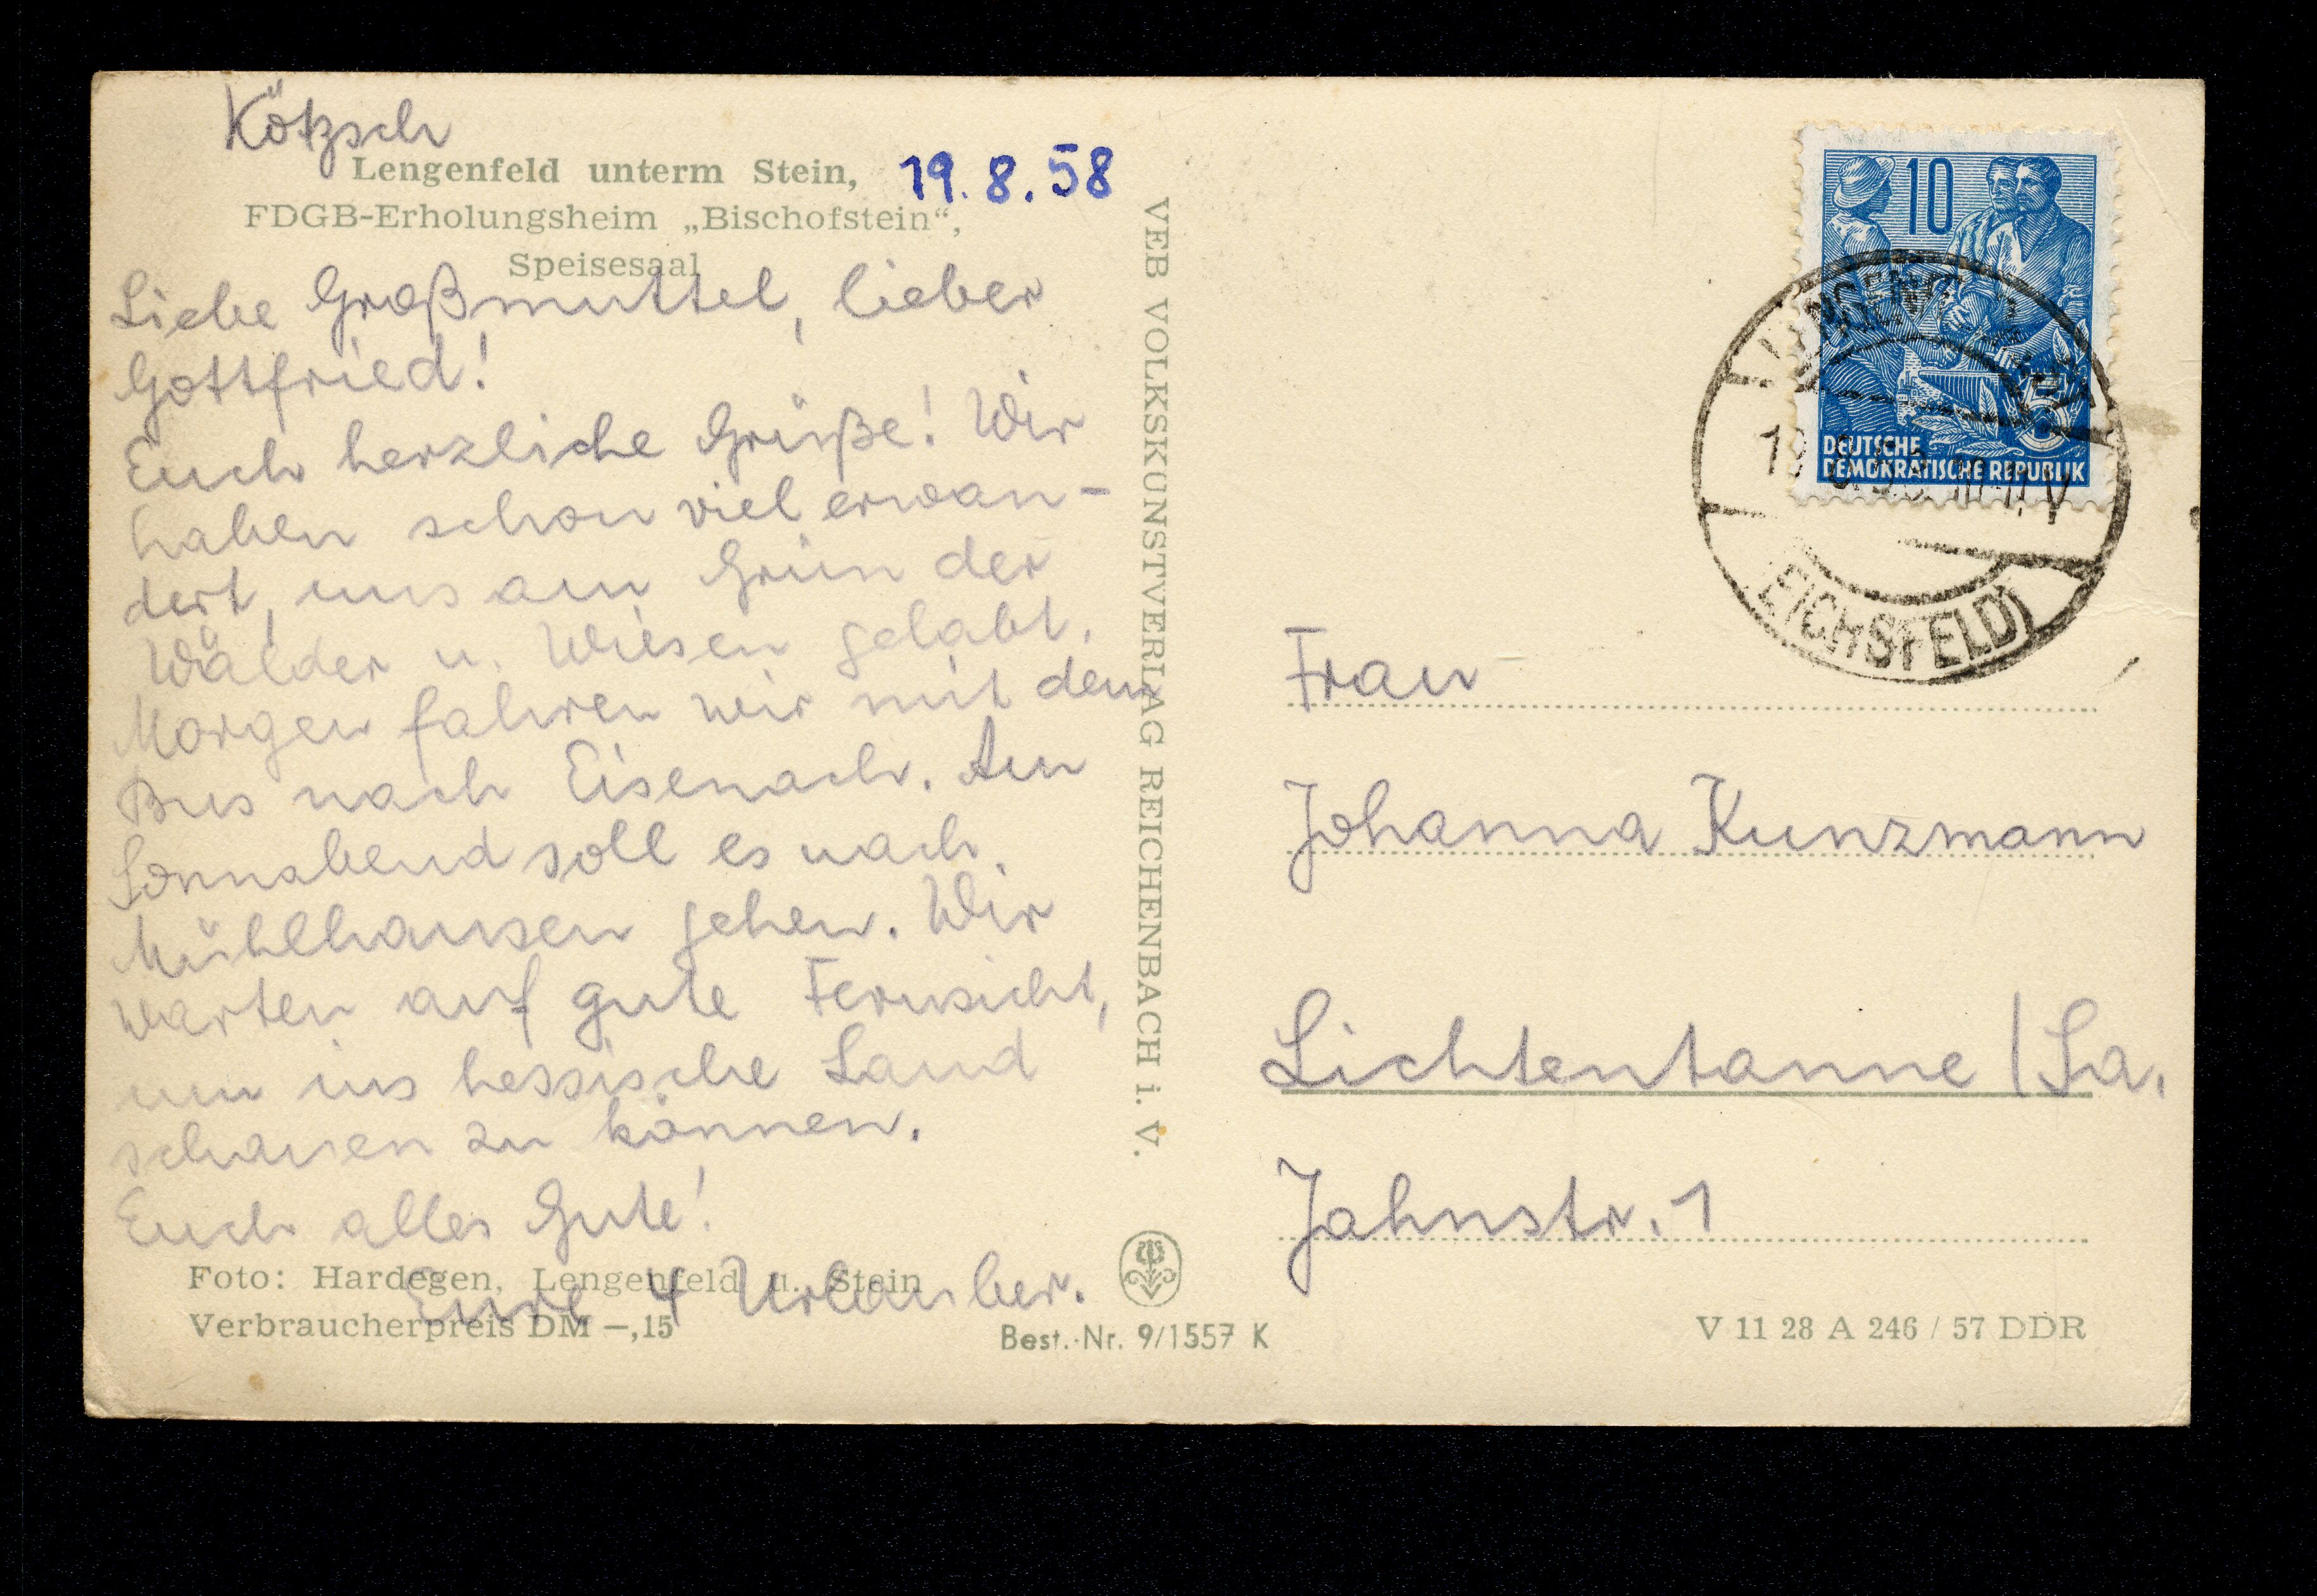 Kötzsch
Lengenfeld unterm Stein,
19.8.58
FDGB-Erholungsheim „Bischofstein“,
Speisesaal
Liebe Großmuttel, lieber
Gottfried!
Euch herzliche Grüße! Wir
haben schon viel erwan-
dert, uns am Grün der
Wälder u. Wiesen gelabt.
Morgen fahren wir mit dem
Bus nach Eisenach. Am
Sonnabend soll es nach
Mühlhausen gehen. Wir
warten auf gute Fernsicht,
um ins hessische Land
schauen zu können.
Euch alles Gute!
Eure 4 Urlauber.
Foto: Hardegen, Lengenfeld u. Stein
Verbraucherpreis DM —,15
Best.-Nr. 9/1557 K
VEB VOLKSKUNSTVERLAG REICHENBACH i. V.
10
5
DEUTSCHE
DEMOKRATISCHE REPUBLIK
(EICHSFELD)
Frau
Johanna Kunzmann
Lichtentanne / Sa.
Jahnstr. 1
V 11 28 A 246 / 57 DDR